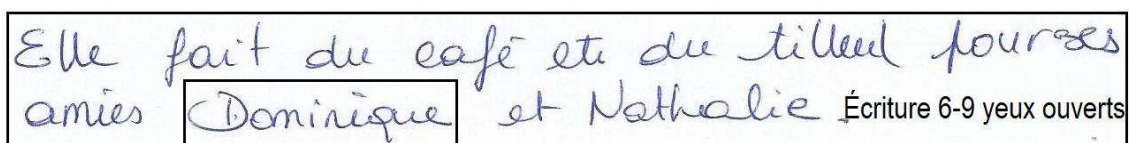 Elle fait du café et du tilleul pour ses
amies Dominique et Nathalie. Écriture 6-9 yeux ouverts